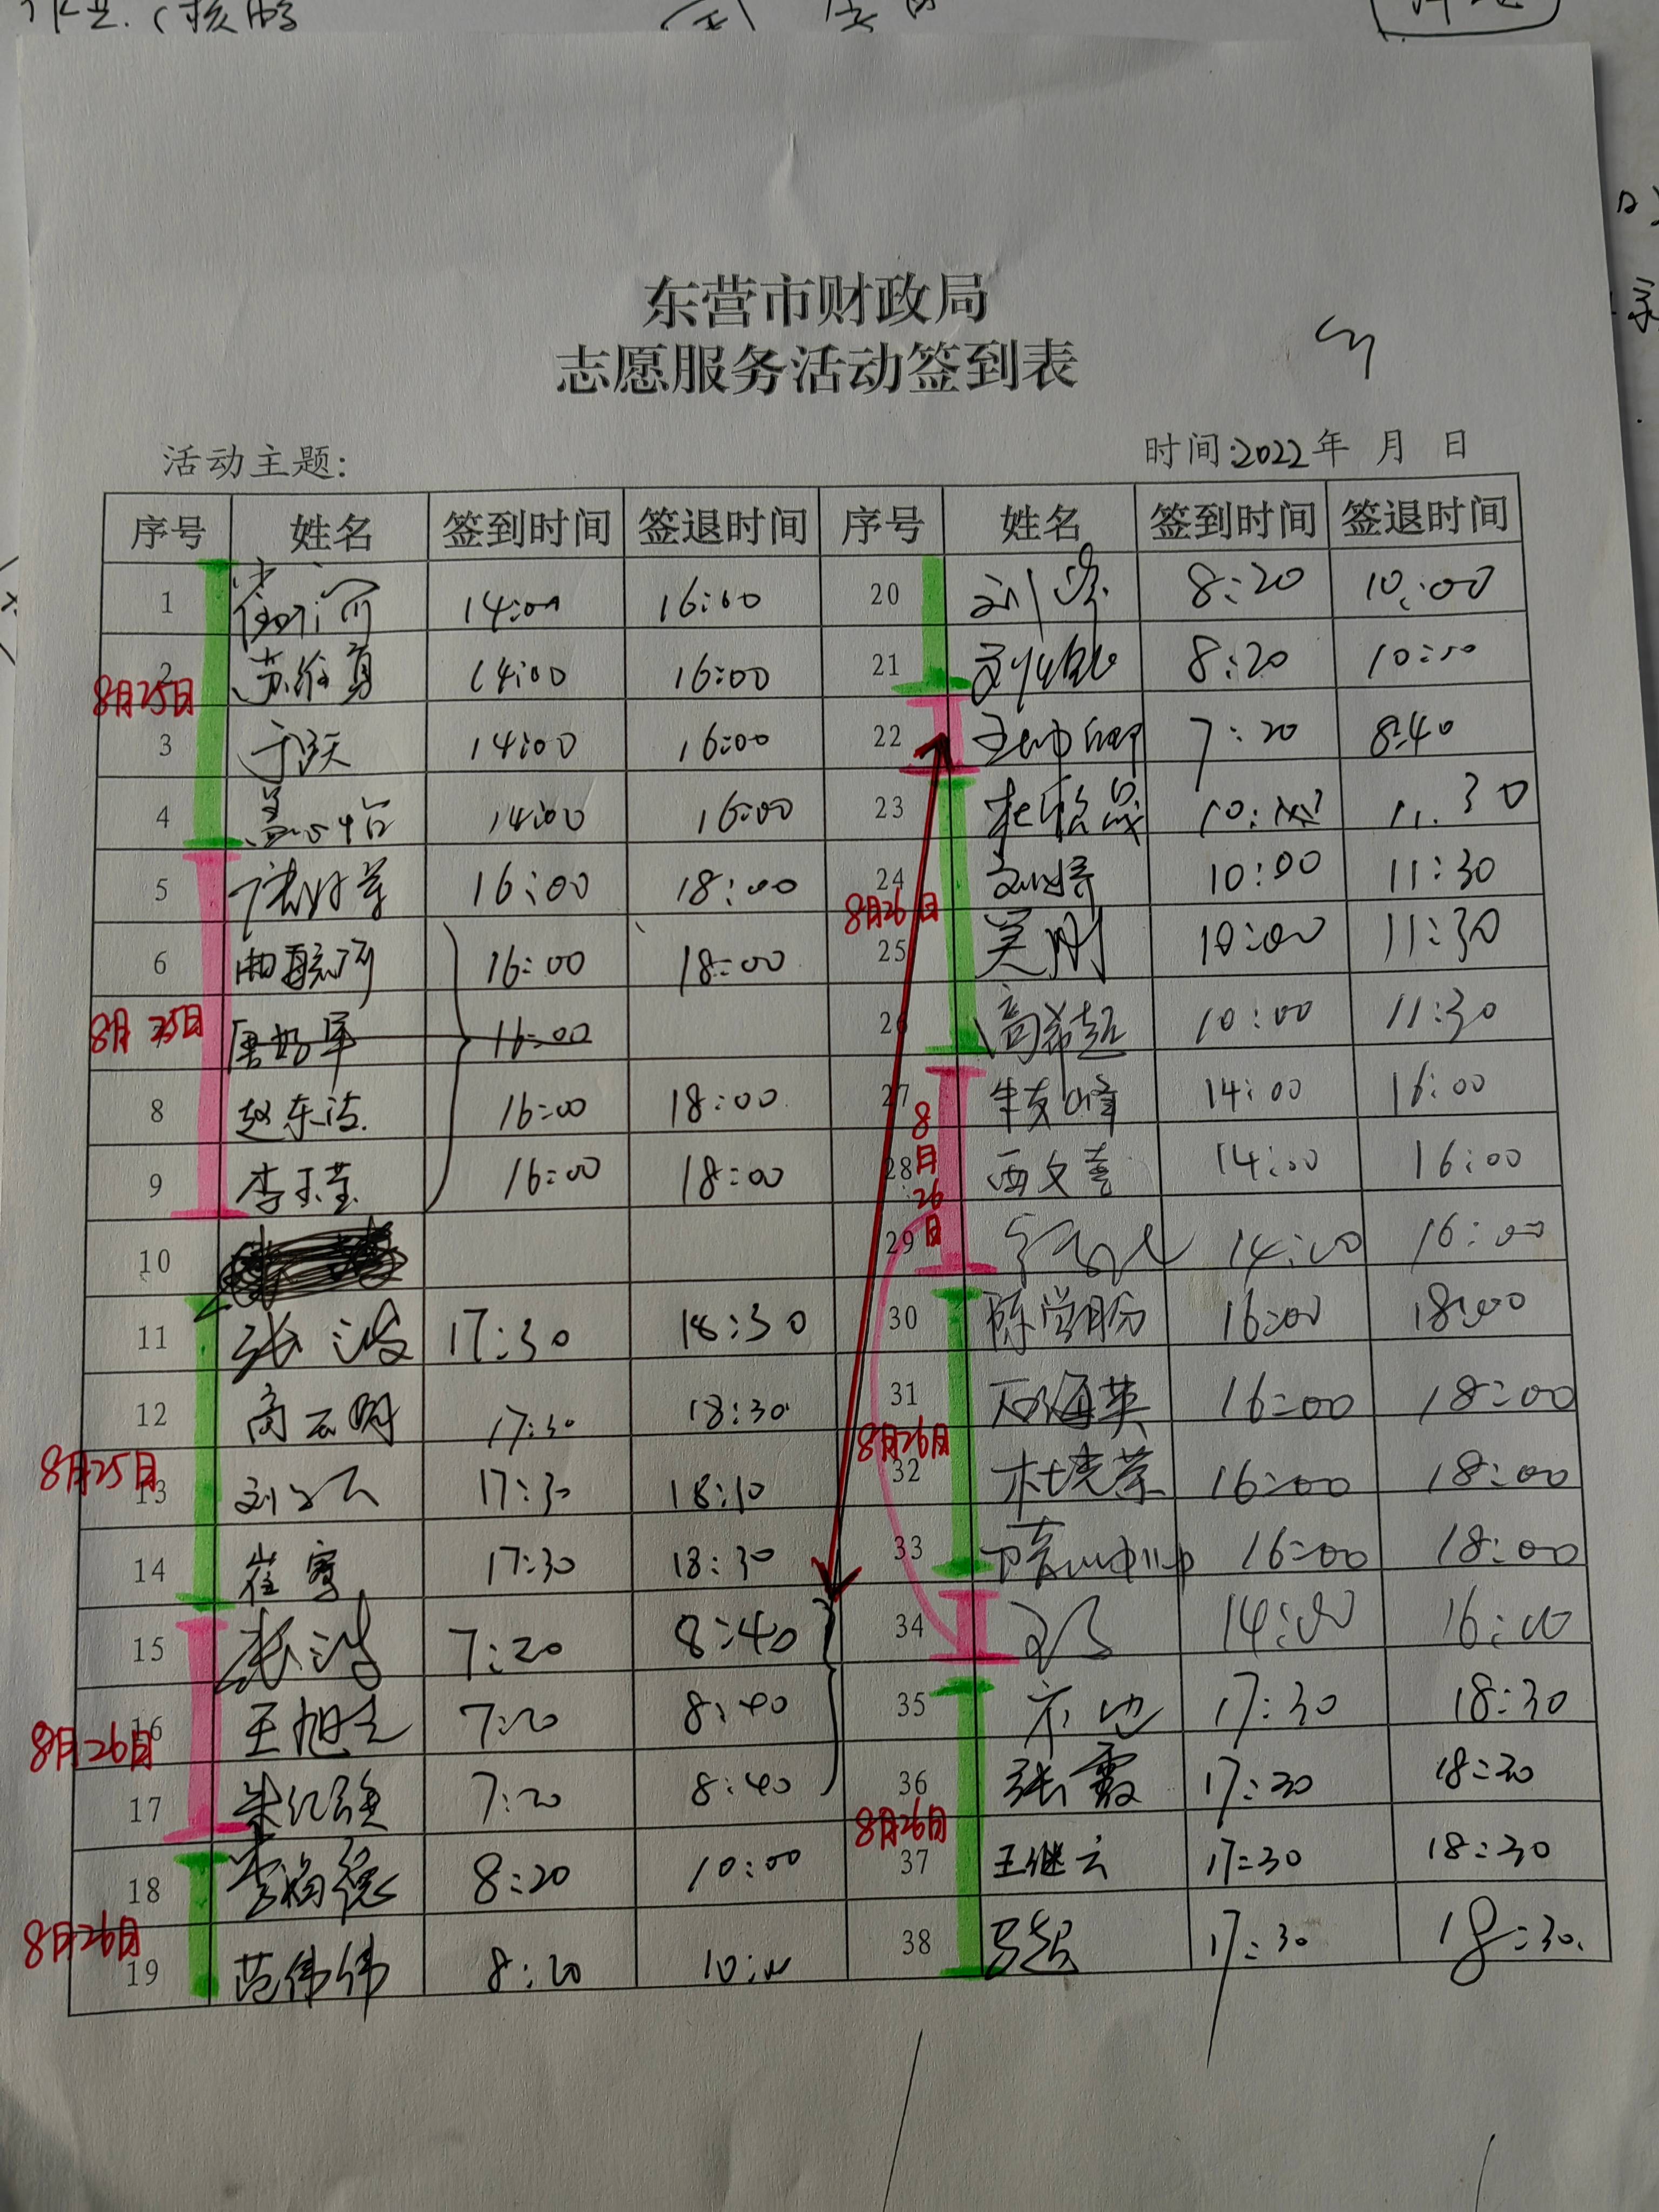 东营市财政局
志愿服务活动签到表
活动主题:
时间:2022年 月 日
序号 姓名 签到时间 签退时间 序号 姓名 签到时间 签退时间
1 14:00 16:00 20 刘 8:20 10:00
2 14:00 16:00 21 8:20 10:00
8月25日
3 于跃 14:00 16:00 22 7:20 8:40
4 14:00 16:00 23 10:00 11:30
5 16:00 18:00 24 10:00 11:30
8月26日
6 16:00 18:00 25 吴刚 10:00 11:30
8月25日
唐好军 16:00 26 高希超 10:00 11:30
8 赵东洁 16:00 18:00 27 牛友峰 14:00 16:00
8月26日
9 李玉莹 16:00 18:00 28 西文喜 14:00 16:00
10 29 14:00 16:00
11 张波 17:30 18:30 30 陈学月份 16:00 18:00
12 高云明 17:30 18:30 31 石海英 16:00 18:00
8月25日 8月26日
13 刘 17:30 18:30 32 杜培荣 16:00 18:00
14 崔 17:30 18:30 33 16:00 18:00
15 张涛 7:20 8:40 34 14:00 16:00
16 王旭 7:20 8:40 35 17:30 18:30
8月26日
17 朱红强 7:20 8:40 36 张霞 17:30 18:30
8月26日
18 李福德 8:20 10:00 37 王继云 17:30 18:30
8月26日
19 范伟伟 8:20 10:00 38 马超 17:30 18:30